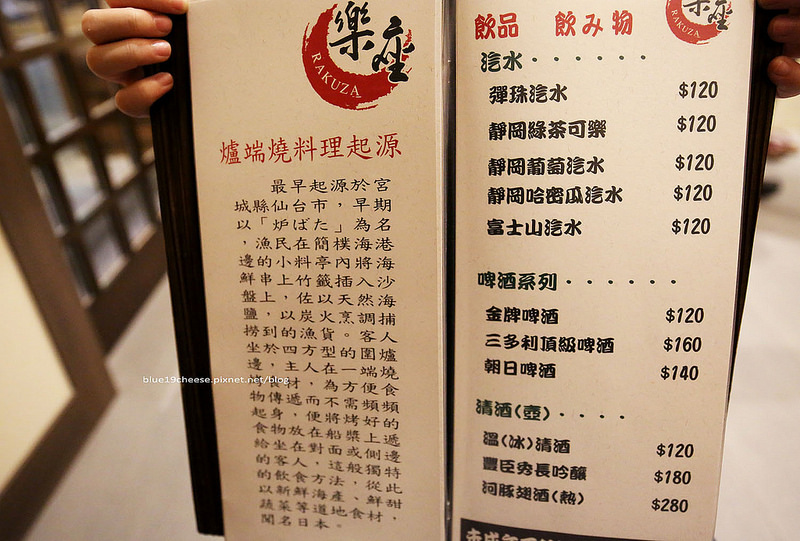 樂座
RAKUZA
爐端燒料理起源
最早起源於宮
城縣仙台市，早期
以「炉ばた」為名
，漁民在簡樸海港
邊的小料亭內將海
鮮串上竹籤插入沙
盤上，佐以天然海
鹽，以炭火烹調捕
撈到的漁貨。客人
坐於四方型的圍爐
邊，主人在一端燒
食材，為方便食
物傳遞而不需頻頻
起身，便將烤好的
食物放在船槳上遞
給坐在對面或側邊
的客人，這般獨特
的飲食方法，從此
以新鮮海產、鮮甜
蔬菜等道地食材，
聞名日本。
blue19cheese.pixnet.net/blog
樂座
RAKUZA
飲品 飲み物
汽水・・・・・・
彈珠汽水 $120
靜岡綠茶可樂 $120
靜岡葡萄汽水 $120
靜岡哈密瓜汽水 $120
富士山汽水 $120
啤酒系列・・・・・・
金牌啤酒 $120
三多利頂級啤酒 $160
朝日啤酒 $140
清酒(壺)・・・・
溫(冰)清酒 $120
豐臣秀長吟釀 $180
河豚翅酒(熱) $280